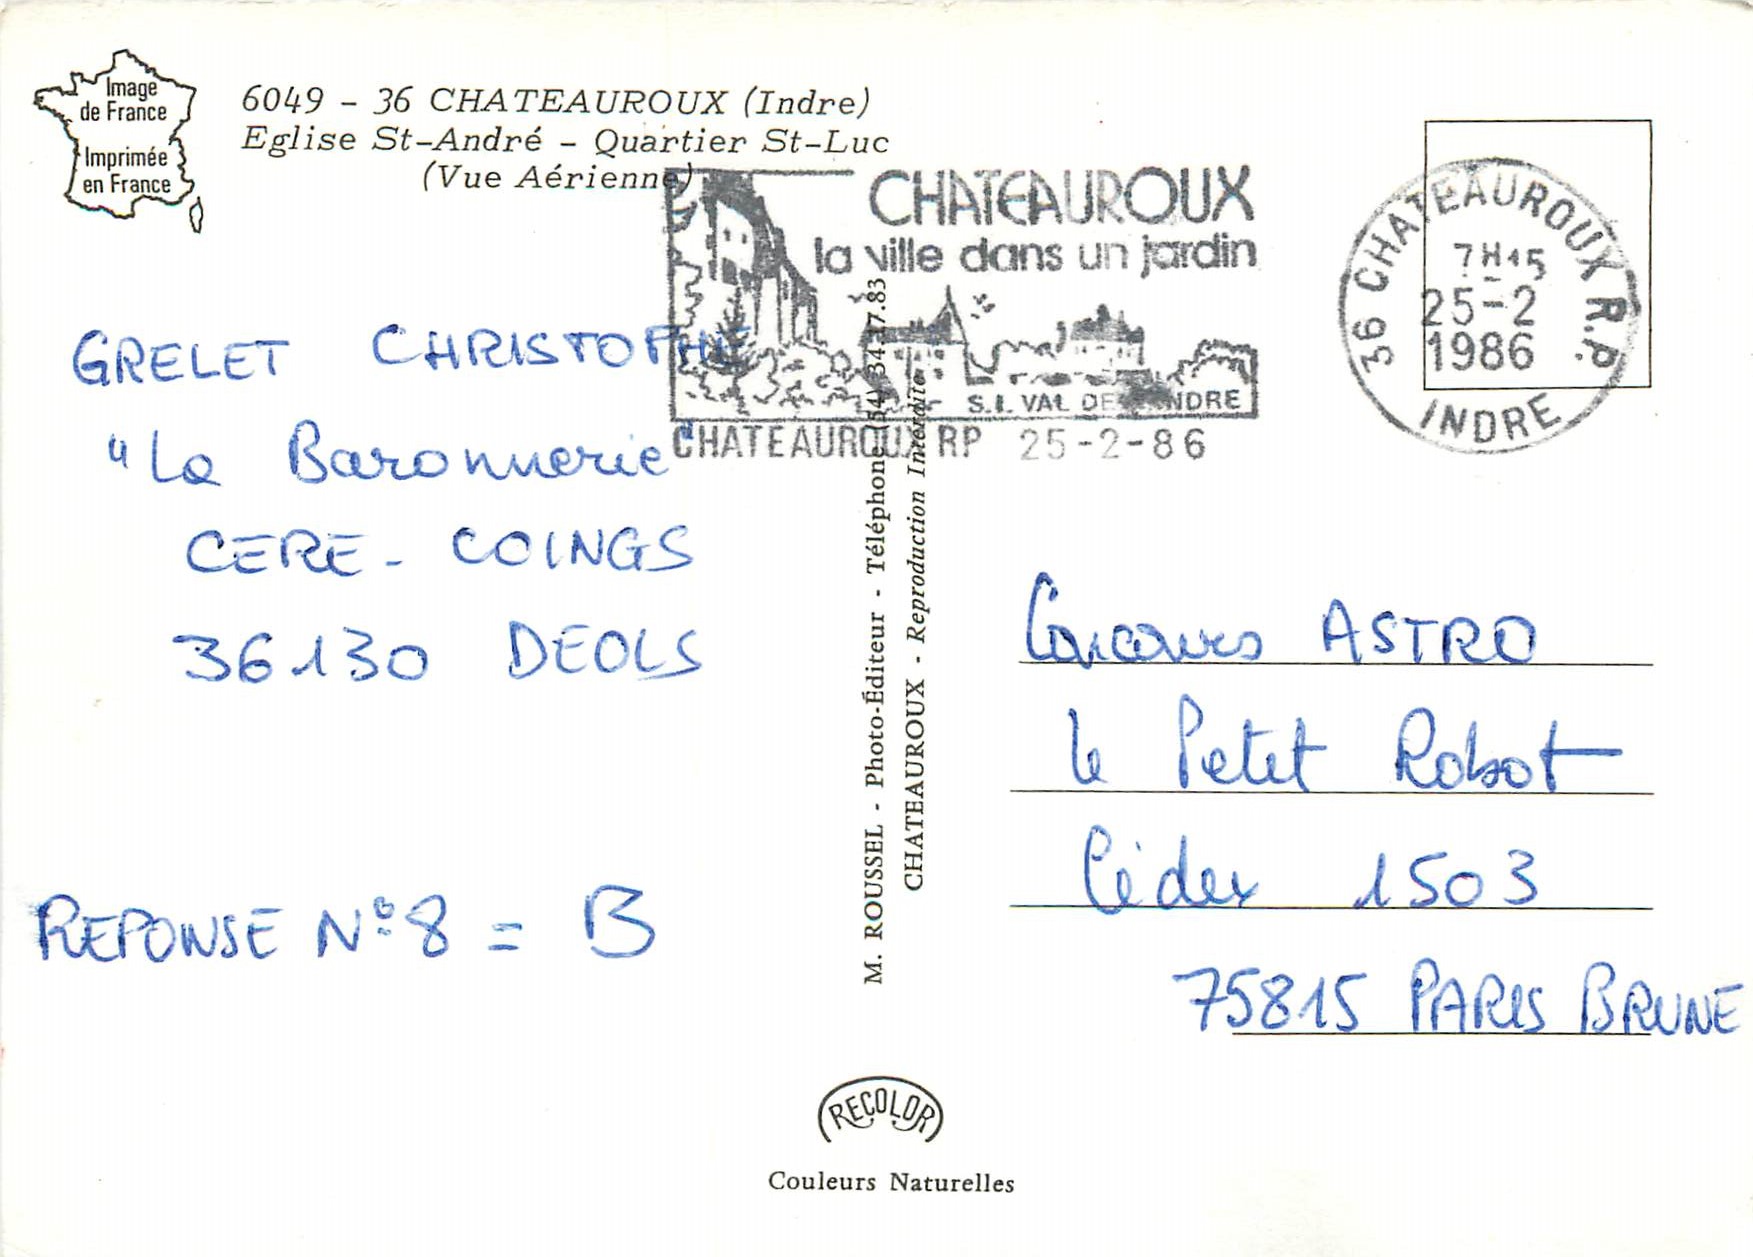 Image
de France
Imprimée
en France
6049 - 36 CHATEAUROUX (Indre)
Eglise St-André - Quartier St-Luc
(Vue Aérienne)
CHATEAUROUX
la ville dans un jardin
S.I. VAL DE L'INDRE
CHATEAUROUX RP 25-2-86
36 CHATEAUROUX R.P.
7H15
25-2
1986
INDRE
GRELET CHRISTOPHE
"La Baronnerie"
CERE - COINGS
36130 DEOLS
REPONSE N°8 = B
M. ROUSSEL - Photo-Éditeur - Téléphone (54) 34.17.83
CHATEAUROUX - Reproduction Interdite
Concours ASTRO
le Petit Robot
Cédex 1503
75815 PARIS BRUNE
RECOLOR
Couleurs Naturelles